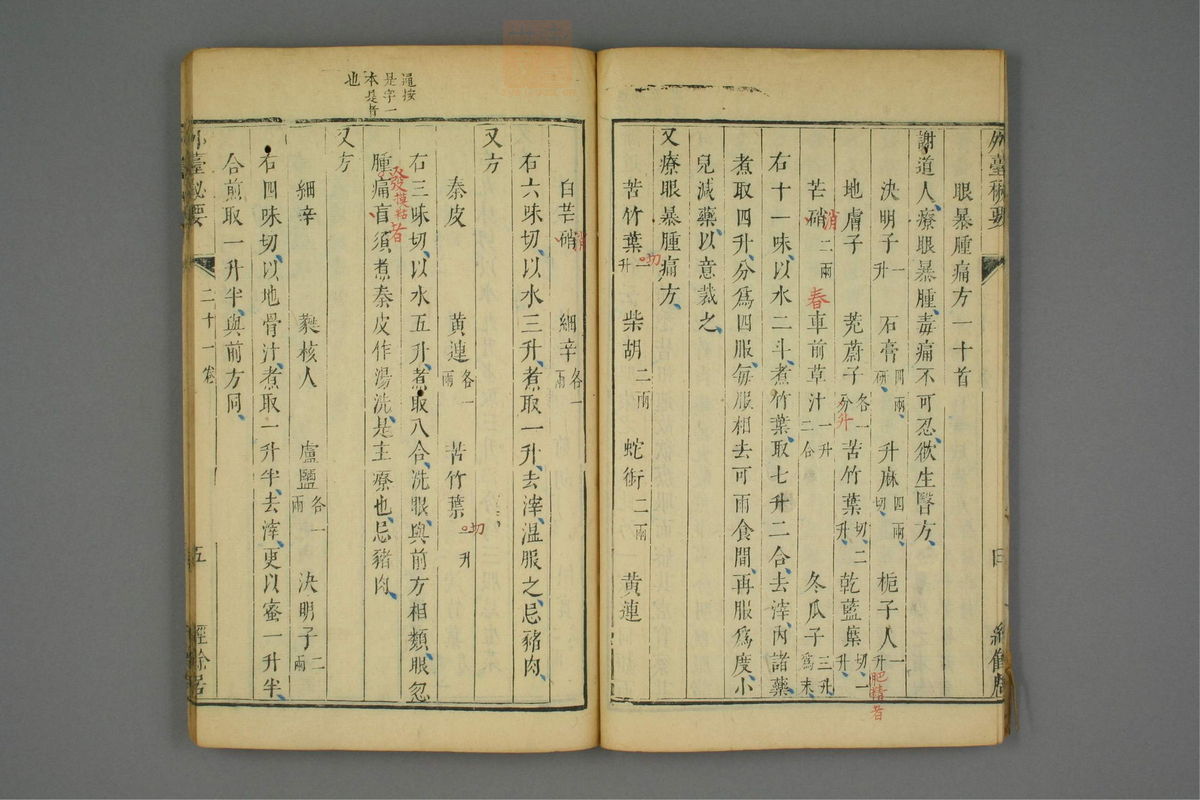 外臺秘要
眼暴腫痛方一十首
謝道人療眼暴腫毒痛不可忍欲生瞖方
決明子一升 石膏四兩研 升麻四兩切 梔子人一升 肥精者
地膚子 茺蔚子各一分 升 苦竹葉切二升 乾藍葉切一升
芒硝二兩 消 春車前草汁一升二合 冬瓜子三升爲末
右十一味以水二斗煮竹葉取七升二合去滓内諸藥
煮取四升分爲四服每服相去可兩食間再服爲度小
兒減藥以意裁之
又療眼暴腫痛方
苦竹葉一升 㕮 柴胡二兩 蛇銜二兩 黄連
白芒硝 消 細辛各一兩
右六味切以水三升煮取一升去滓温服之忌豬肉
又方
秦皮 黄連各一兩 苦竹葉一升 㕮
右三味切以水五升煮取八合洗眼與前方相類眼忽
腫痛盲須煮秦皮作湯洗是主療也忌豬肉
發 者
又方
細辛 蕤核人 盧鹽各一兩 決明子二兩
右四味切以地骨汁煮取一升半去滓更以蜜一升半
合煎取一升半與前方同
按
是字一
本是者
也
外臺秘要 二十一卷 五 經餘居